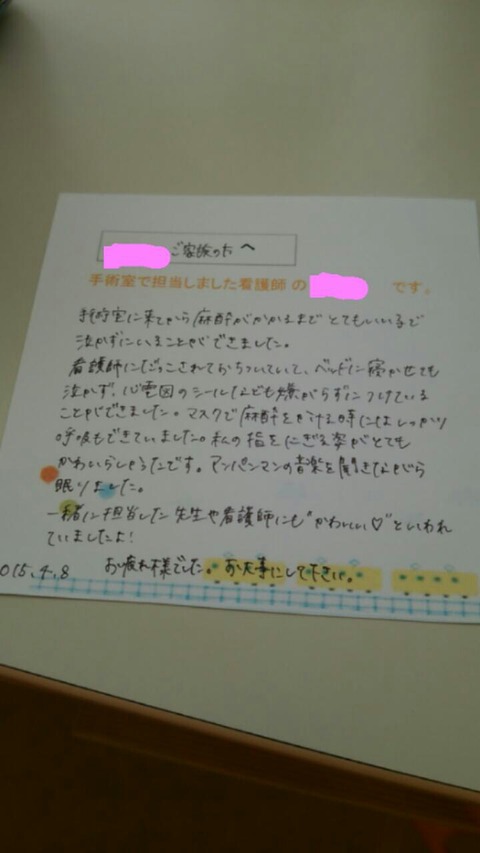 ご家族の方へ
手術室で担当しました看護師の です。
手術室に来てから麻酔がかかるまでとてもいい子で
泣かずにいることができました。
看護師にだっこされておちついていて、ベッドに寝かせても
泣かず、心電図のシールなども嫌がらずにつけている
ことができました。マスクで麻酔をかける時にはしっかり
呼吸もできていました。私の指をにぎる姿がとても
かわいらしかったです。アンパンマンの音楽を聞きながら
眠りました。
一緒に担当した先生や看護師にも"かわいい♡"といわれ
ていましたよ！
お疲れ様でした。お大事にして下さい。
015.4.8